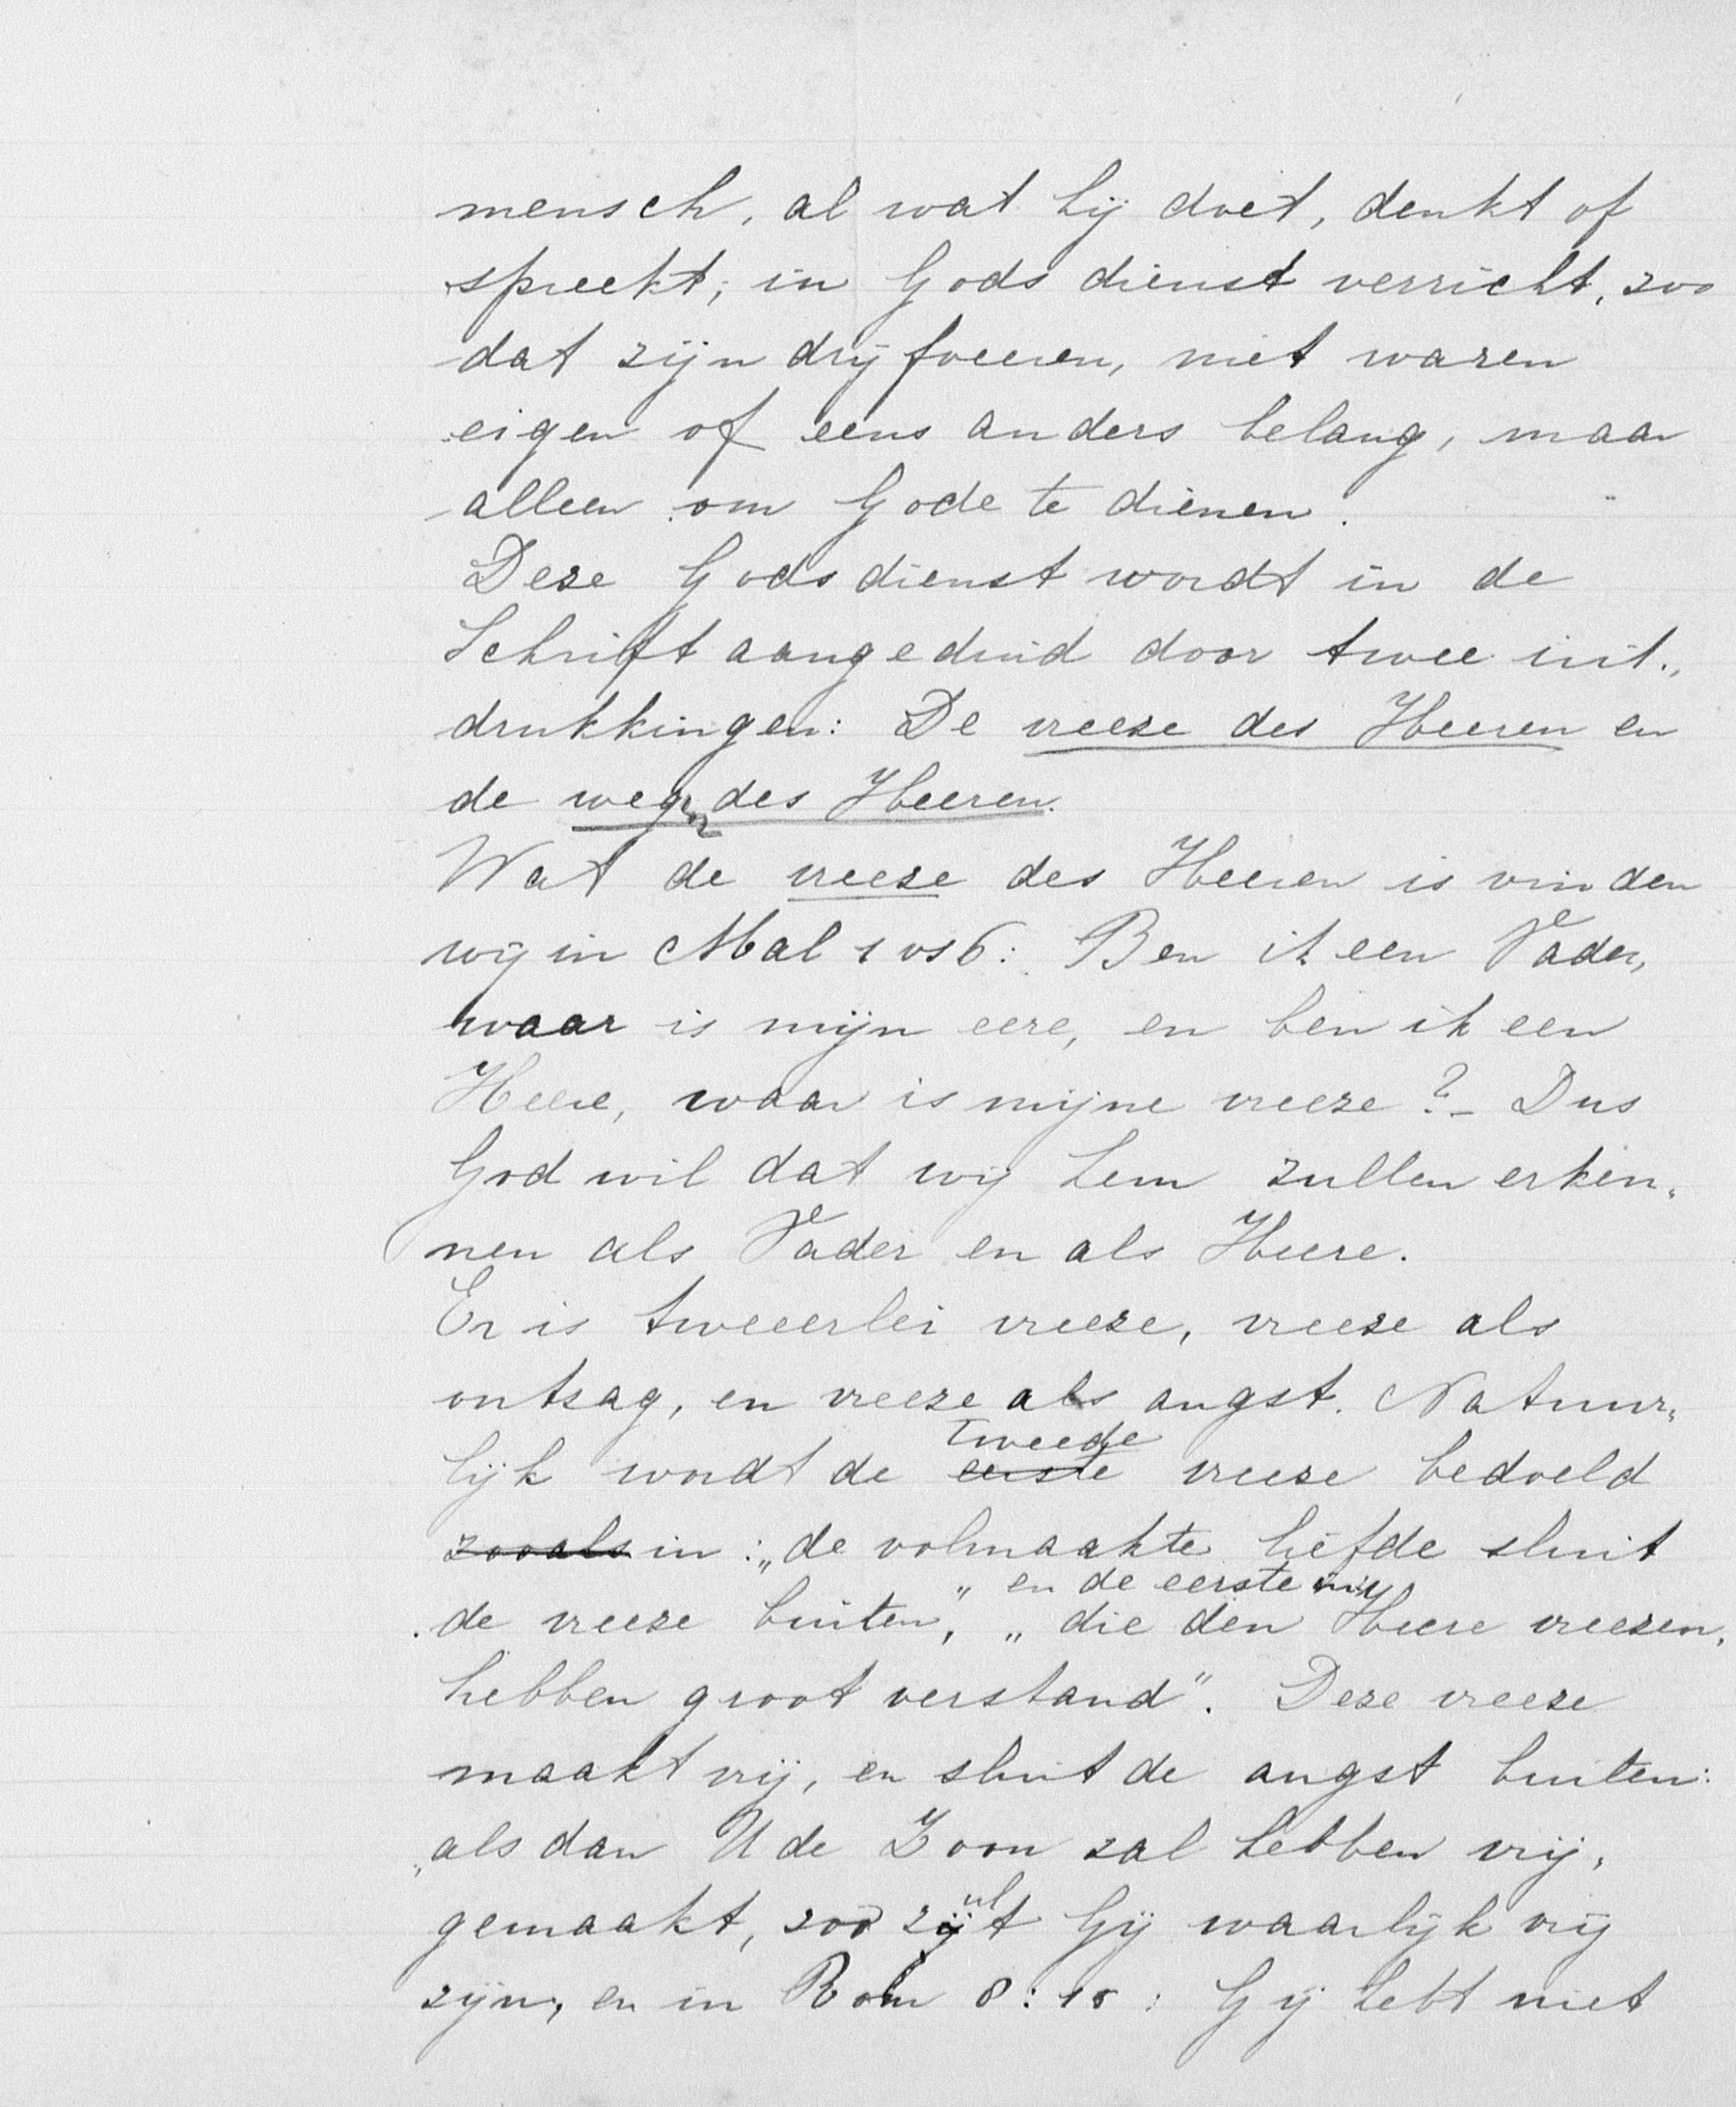 mensch, al wat hij doet, denkt of
spreekt, in Gods dienst verricht, zoo
dat zijn drijfveeren, niet waren
eigen of eens anders belang, maar
alleen om Gode te dienen.
Deze Godsdienst wordt in de
Schrift aangeduid door twee uit„
drukkingen: De vreeze des Heeren en
de wegen des Heeren.
Wat de vreeze des Heeren is vinden
wij in Mal 1 vs 6: Ben ik een Vader,
waar is mijn eere, en ben ik een
Heere, waar is mijne vreeze? – Dus
God wil dat wij hem zullen erken„
nen als Vader en als Heere.
Er is tweeerlei vreeze, vreeze als
ontzag, en vreeze als angst. Natuur„
tweede
lijk wordt de eerste vreeze bedoeld
zooals in: „de volmaakte liefde sluit
en de eerste in:
de vreeze buiten", „die den Heere vreezen,
hebben groot verstand". Deze vreeze
maakt vrij, en sluit de angst buiten:
„als dan U de Zoon zal hebben vrij„
gemaakt, zoo zult Gij waarlijk vrij
zijn, en in Rom 8:15: Gij hebt niet